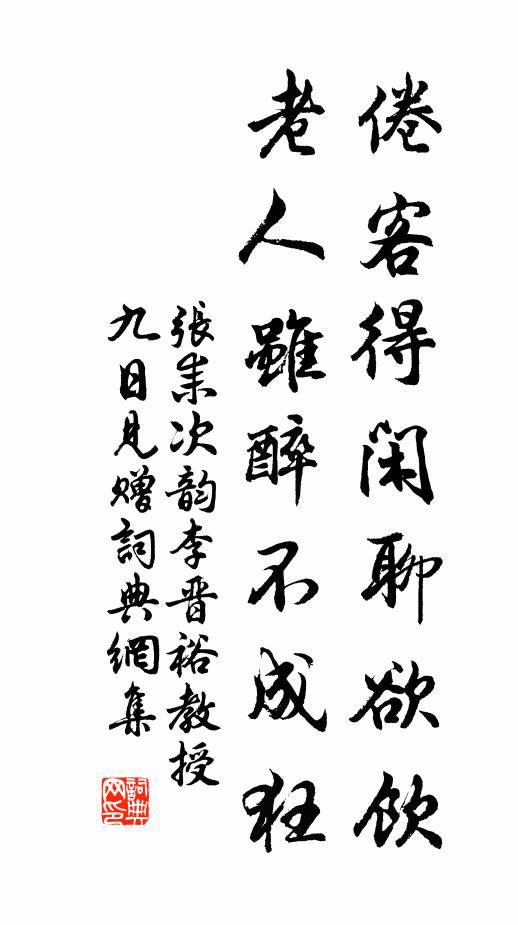 倦客得閑聊欲飲
老人雖醉不成狂
張耒次韵李晋裕教授
九日見贈詞典網集
詞典网印